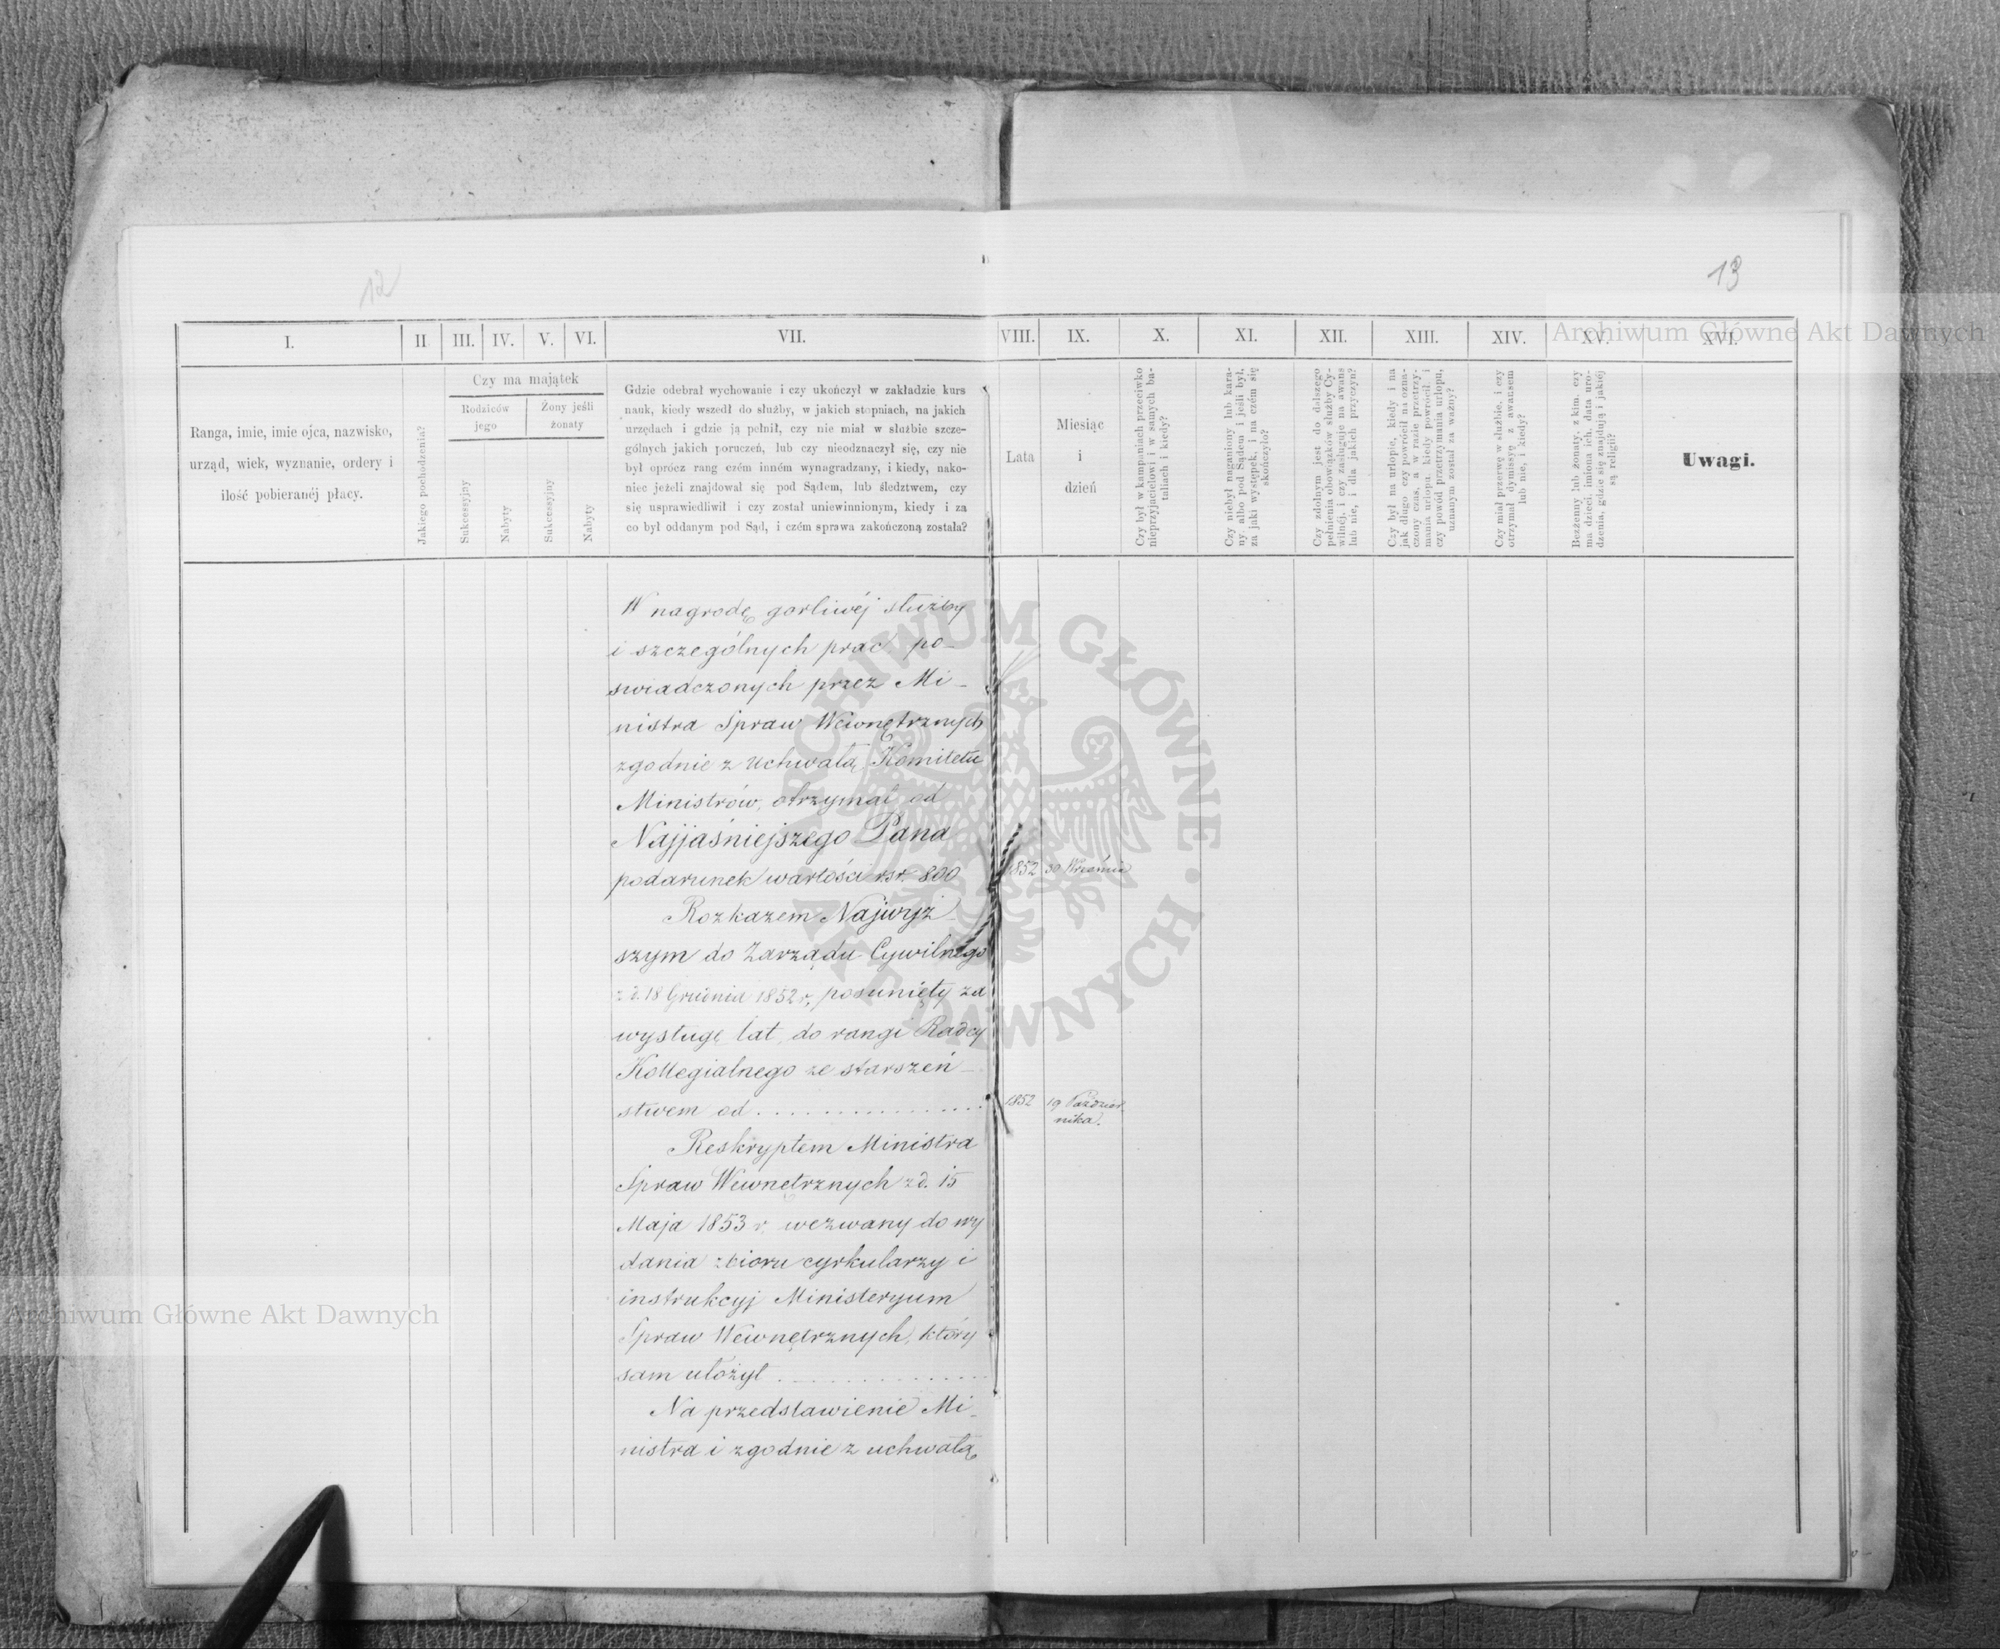 12
13
Archiwum Główne Akt Dawnych
I.
II
III.
IV.
V.
VI.
VII.
VIII.
IX.
X.
XI.
XII.
XIII.
XIV.
XV.
XVI.
Ranga, imie, imie ojca, nazwisko,
urząd, wiek, wyznanie, ordery i
ilość pobieranéj płacy.
Jakiego pochodzenia?
Czy ma majątek
Rodziców
jego
Żony jeśli
żonaty
Sukcessyjny
Nabyty
Sukcessyjny
Nabyty
Gdzie odebrał wychowanie i czy ukończył w zakładzie kurs
nauk, kiedy wszedł do służby, w jakich stopniach, na jakich
urzędach i gdzie ją pełnił, czy nie miał w służbie szcze-
gólnych jakich poruczeń, lub czy nieodznaczył się, czy nie
był oprócz rang czém inném wynagradzany, i kiedy, nako-
niec jeżeli znajdował się pod Sądem, lub śledztwem, czy
się usprawiedliwił i czy został uniewinnionym, kiedy i za
co był oddanym pod Sąd, i czém sprawa zakończoną została?
Lata
Miesiąc
i
dzień
Czy był w kampaniach przeciwko
nieprzyjacielowi i w samych ba-
taliach i kiedy?
Czy niebył naganiony lub kara-
ny, albo pod Sądem i jeśli był,
za jaki występek, i na czém się
skończyło?
Czy zdolnym jest do dalszego
pełnienia obowiązków służby Cy-
wilnéj, i czy zasługuje na awans
lub nie, i dla jakich przyczyn?
Czy był na urlopie, kiedy i na
jak długo, czy powrócił na ozna-
czony czas, a w razie przetrzy-
mania urlopu, kiedy powrócił i
czy powód przetrzymania urlopu,
uznanym został za ważny?
Czy miał przerwę w służbie, i czy
otrzymał dymissyę z awansem
lub nie, i kiedy?
Bezżenny lub żonaty, z kim, czy
ma dzieci, imiona ich, data uro-
dzenia, gdzie się znajdują i jakiéj
są religii?
Uwagi.
W nagrodę gorliwéj służby
i szczególnych prac, po-
swiadczonych przez Mi-
nistra Spraw Wewnętrznych
zgodnie z uchwałą Komitetu
Ministrów, otrzymał od
Najjaśniejszego Pana
podarunek wartości rsr. 800
1852 30 Września
Rozkazem Najwyż-
szym do Zarządu Cywilnego
z d. 18 Grudnia 1852 r, posunięty za
wysługę lat, do rangi Radcy
Kollegialnego ze starszeń-
stwem od . . . . . . . . . . . . . . .
1852 19 Paździer-
nika.
Reskryptem Ministra
Spraw Wewnętrznych z d. 15
Maja 1853 r. wezwany do wy
dania zbioru cyrkularzy i
instrukcyj Ministeryum
Spraw Wewnętrznych, który
sam ułożył . . . . . . . . . . . . . .
Na przedstawienie Mi-
nistra i zgodnie z uchwałą
ARCHIWUM GŁÓWNE · AKT DAWNYCH ·
Archiwum Główne Akt Dawnych